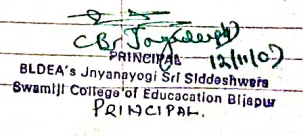 PRINCIPAL 12/11/07
BLDEA's Jnyanayogi Sri Siddeshwara
Swamiji College of Educacation Bijapur
PRINCIPAL.